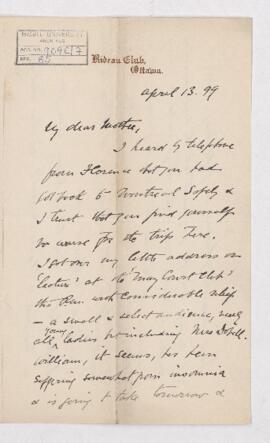 McGILL UNIVERSITY
ARCHIVES
ACC. NO. 909C/7
REF. 65
Rideau Club,
Ottawa.
April 13. 99
My dear Mother,
I heard by telephone
from Florence that you had
got back to Montreal safely &
I trust that you find yourself
no worse for the trip here.
I got over my little address on
at the "May Court Club"
this with considerable relief
- a small & select audience, nearly
all young ladies but including Mrs Dobell.
William, it seems, has been
suffering somewhat from insomnia
& is going to take tomorrow &